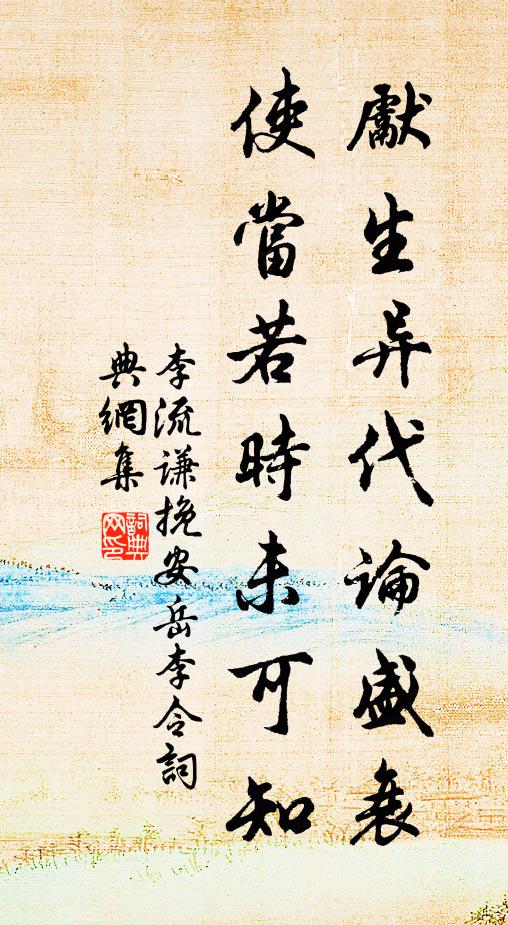 獻生异代論盛衰
使當若時未可知
李流謙挽安岳李令詞
典網集
詞典
网印